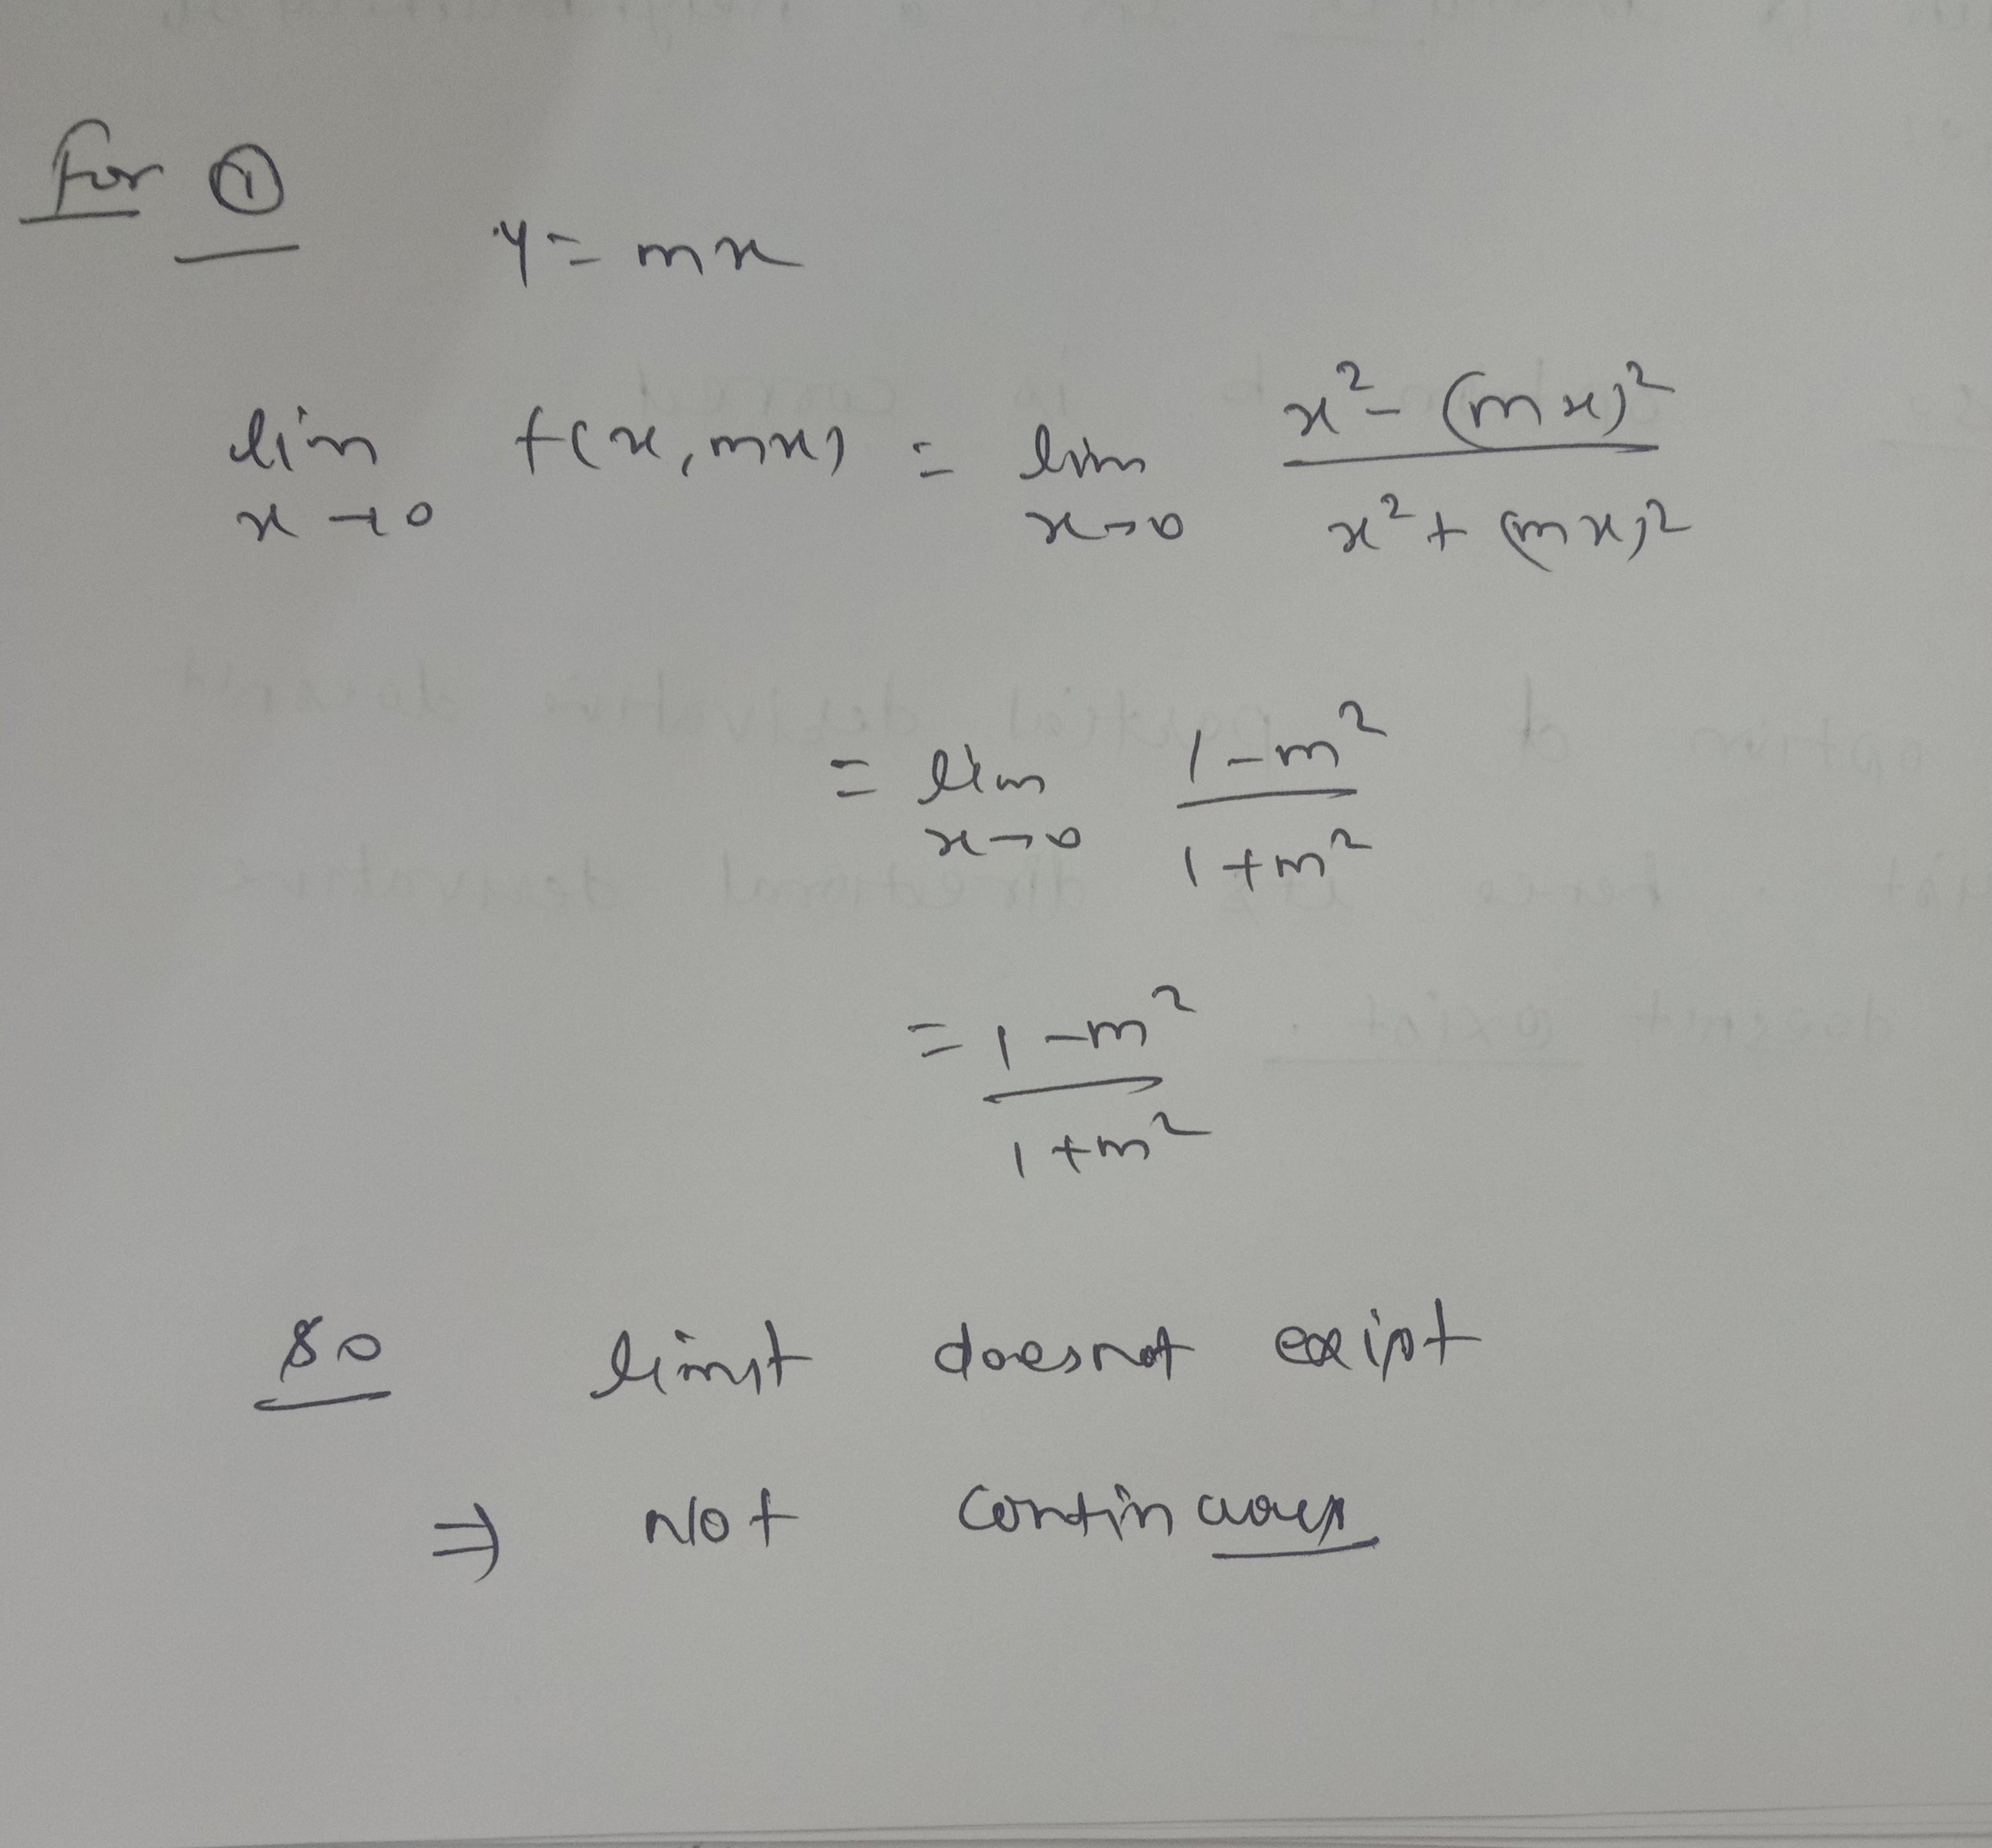 For ①
y = mx
lim x→0 f(x, mx) = lim x→0 x² - (mx)² / x² + (mx)²
= lim x→0 1-m² / 1+m²
= 1-m² / 1+m²
So limit doesnot exist
⇒ Not continuous